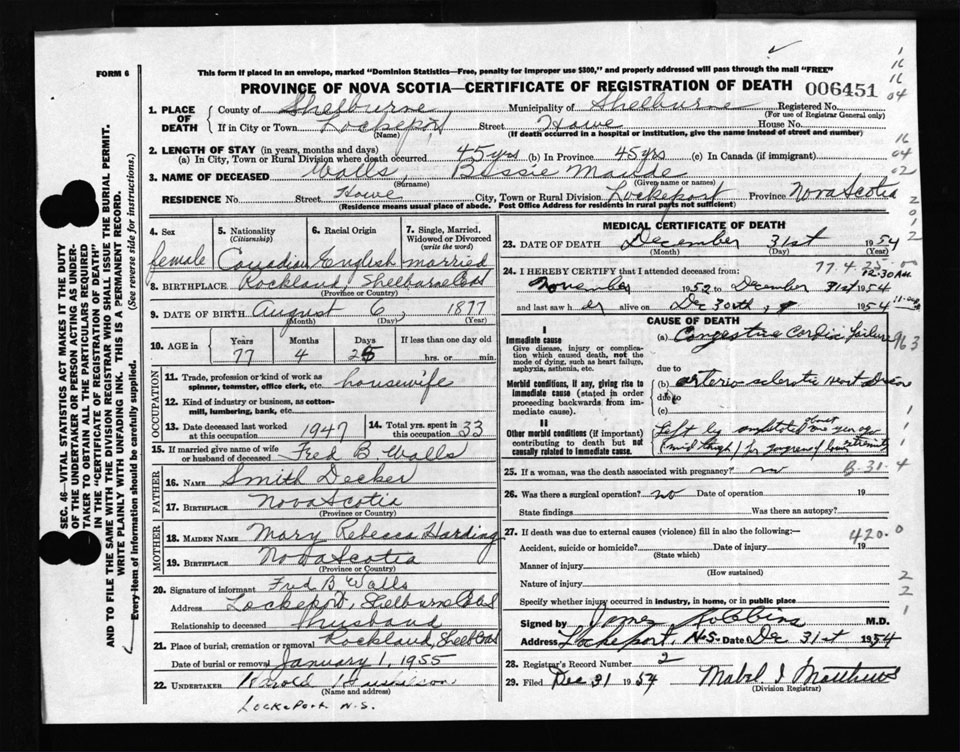 FORM 6
This form if placed in an envelope, marked "Dominion Statistics—Free, penalty for improper use $300," and properly addressed will pass through the mail "FREE"
PROVINCE OF NOVA SCOTIA—CERTIFICATE OF REGISTRATION OF DEATH 006451
1. PLACE OF DEATH
County of Shelburne Municipality of Shelburne Registered No.
(For use of Registrar General only)
If in City or Town Lockeport Street Howe House No.
(Name) (If death occurred in a hospital or institution, give the name instead of street and number)
2. LENGTH OF STAY (in years, months and days)
(a) In City, Town or Rural Division where death occurred 45 yrs (b) In Province 45 yrs (c) In Canada (if immigrant)
3. NAME OF DECEASED Walls, Bessie Maude
(Surname) (Given name or names)
RESIDENCE No. Street Howe City, Town or Rural Division Lockeport Province Nova Scotia
(Residence means usual place of abode. Post Office Address for residents in rural parts not sufficient)
4. Sex
female
5. Nationality
(Citizenship)
Canadian
6. Racial Origin
English
7. Single, Married, Widowed or Divorced
(write the word)
married
8. BIRTHPLACE Rockland, Shelburne Co NS
(Province or Country)
9. DATE OF BIRTH August 6, 1877
(Month) (Day) (Year)
10. AGE in
Years Months Days If less than one day old
77 4 25 hrs. or min.
OCCUPATION
11. Trade, profession or kind of work as spinner, teamster, office clerk, etc. housewife
12. Kind of industry or business, as cotton-mill, lumbering, bank, etc.
13. Date deceased last worked at this occupation 1947
14. Total yrs. spent in this occupation 33
15. If married give name of wife or husband of deceased Fred B Walls
FATHER
16. NAME Smith Decker
17. BIRTHPLACE Nova Scotia
(Province or Country)
MOTHER
18. MAIDEN NAME Mary Rebecca Harding
19. BIRTHPLACE Nova Scotia
(Province or Country)
20. Signature of informant Fred B Walls
Address Lockeport, Shelburne Co NS
Relationship to deceased Husband
21. Place of burial, cremation or removal Rockland, Shelb Co NS
Date of burial or removal January 1, 1955
22. UNDERTAKER Harold
(Name and address)
Lockeport N.S.
MEDICAL CERTIFICATE OF DEATH
23. DATE OF DEATH December 31st 1954
(Month) (Day)
77. 4. 25. 00
24. I HEREBY CERTIFY that I attended deceased from: 12.30 AM
November 1952 to December 31st 1954
and last saw her alive on Dec 30th, 1954
CAUSE OF DEATH
I
Immediate cause
Give disease, injury or complication which caused death, not the mode of dying, such as heart failure, asphyxia, asthenia, etc.
(a) Congestive Cardiac Failure
due to
Morbid conditions, if any, giving rise to immediate cause (stated in order proceeding backwards from immediate cause).
(b) arterio sclerotic Heart Disease
due to
(c)
II
Other morbid conditions (important) contributing to death but not causally related to immediate cause.
Left leg amputated one year ago
(mid thigh) for gangrene of lower extremity
25. If a woman, was the death associated with pregnancy? no
B-31-4
26. Was there a surgical operation? no Date of operation 19
State findings Was there an autopsy?
27. If death was due to external causes (violence) fill in also the following:—
420.0
Accident, suicide or homicide? Date of injury 19
(State which)
Manner of injury
(How sustained)
Nature of injury
Specify whether injury occurred in industry, in home, or in public place
Signed by James Robbins M.D.
Address Lockeport, N.S. Date Dec 31st 1954
28. Registrar's Record Number 2
29. Filed Dec 31 1954 Mabel I Matthews
(Division Registrar)
SEC. 46—VITAL STATISTICS ACT MAKES IT THE DUTY
OF THE UNDERTAKER OR PERSON ACTING AS UNDERTAKER
TO OBTAIN ALL THE PARTICULARS REQUIRED
IN THE "CERTIFICATE OF REGISTRATION OF DEATH"
AND TO FILE THE SAME WITH THE DIVISION REGISTRAR WHO SHALL ISSUE THE BURIAL PERMIT.
WRITE PLAINLY WITH UNFADING INK. THIS IS A PERMANENT RECORD.
Every item of information should be carefully supplied. (See reverse side for instructions.)